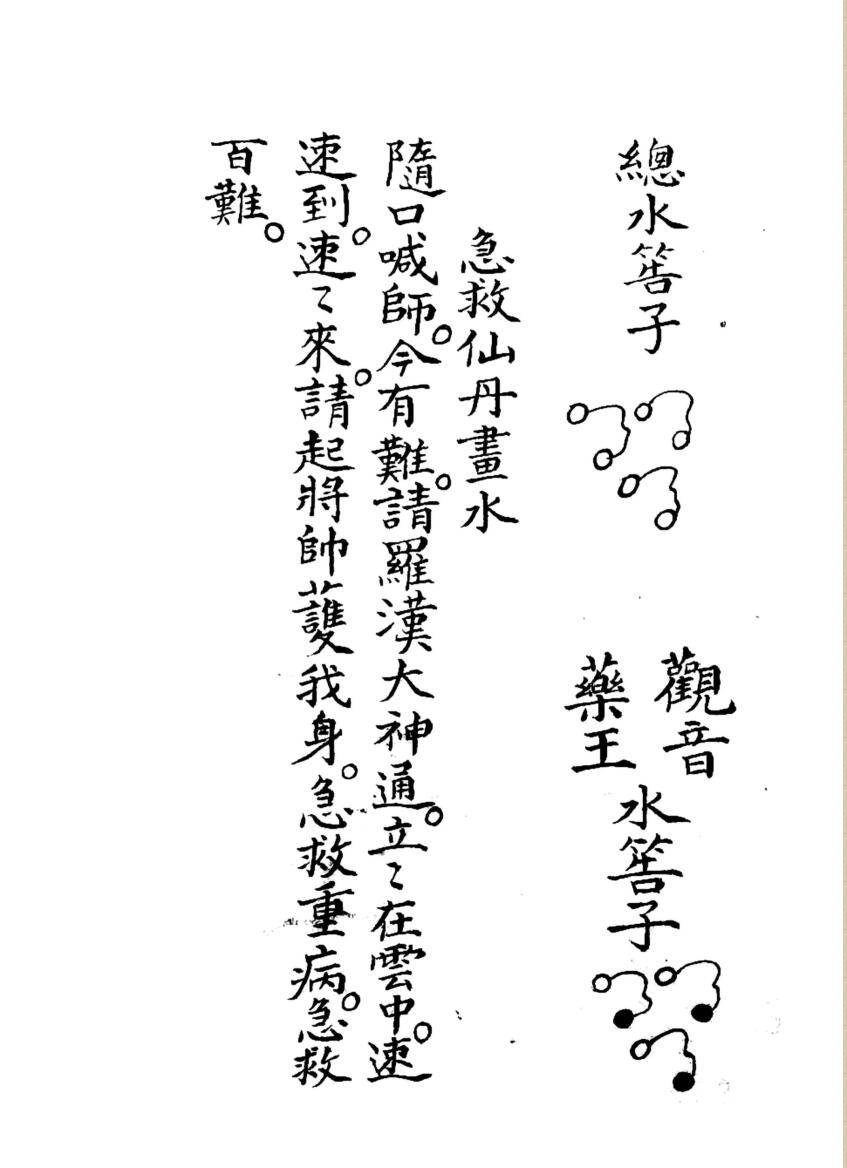 總水筶子
觀音
藥王
水筶子
急救仙丹畫水
隨口喊師。今有難。請羅漢大神通。立〻在雲中。速
速到。速〻來。請起將帥護我身。急救重病。急救
百難。